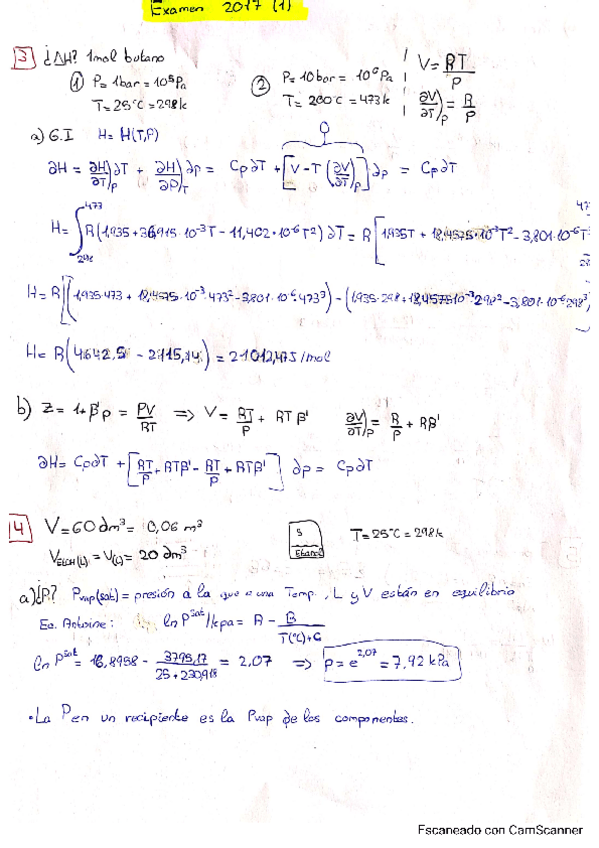 Examen 2017 (1)
3 ¿ΔH? 1mol butano
① P=1bar = 10⁵Pa
T=25°C =298k
② P=10bar = 10⁶Pa
T= 200°C =473k
V=RT/P
∂V/∂T)P = R/P
a) G.I H= H(T,P)
∂H = ∂H/∂T)P ∂T + ∂H/∂P)T ∂p = Cp∂T + [V-T(∂V/∂T)P]∂p = Cp∂T
0
H= ∫298^473 R(1,935+36,915·10⁻³T - 11,402·10⁻⁶T²)∂T = R[1,935T + 18,4575·10⁻³T² - 3,801·10⁻⁶T
H= R[(1,935·473 + 18,4575·10⁻³·473² - 3,801·10⁻⁶473³) - (1,935·298 + 18,4575·10⁻³298² - 3,801·10⁻⁶298³)
H= R(4642,5 - 2115,14) = 21012,47J/mol
b) Z= 1+β'p = PV/RT ⇒ V= RT/P + RTβ' ∂V/∂T)P = R/P + Rβ'
∂H= Cp∂T + [RT/P + RTβ' - RT/P + RTβ'] ∂p = Cp∂T
4 V=60dm³ = 0,06 m³
VEtOH(L) = V(L) = 20 dm³
Etanol
T=25°C = 298k
a) ¿P? Pvap(sat) = presión a la que a una Temp., L y V están en equilibrio
Ec. Antoine: ln Psat/kpa = A - B/T(°C)+C
ln Psat = 16,8958 - 3795,17/25+230,918 = 2,07 ⇒ p=e^2,07 = 7,92 kPa
• La P en un recipiente es la Pvap de los componentes.
Escaneado con CamScanner